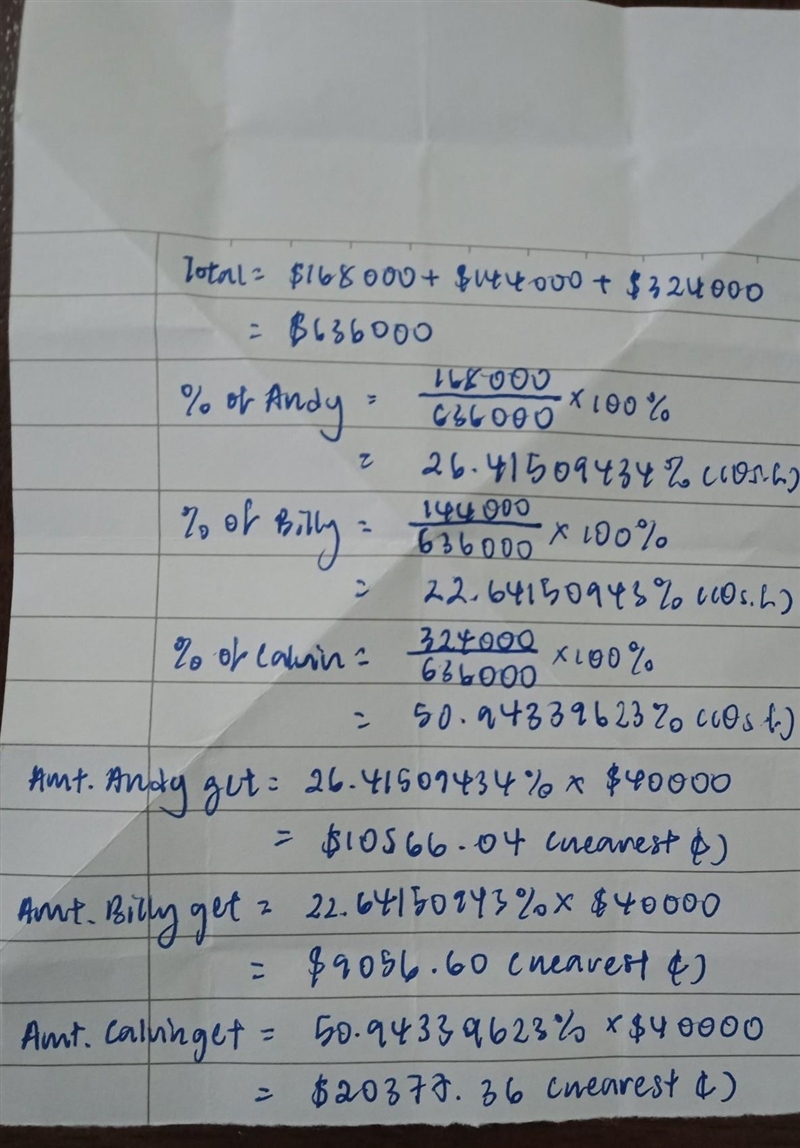 Total = $168000 + $144000 + $324000
= $636000
% of Andy = 168000/636000 × 100%
= 26.41509434% (10s.f.)
% of Billy = 144000/636000 × 100%
= 22.64150943% (10s.f.)
% of Calvin = 324000/636000 × 100%
= 50.94339623% (10s.f.)
Amt. Andy get = 26.41509434% × $40000
= $10566.04 (nearest ¢)
Amt. Billy get = 22.64150943% × $40000
= $9056.60 (nearest ¢)
Amt. Calvin get = 50.94339623% × $40000
= $20377.36 (nearest ¢)